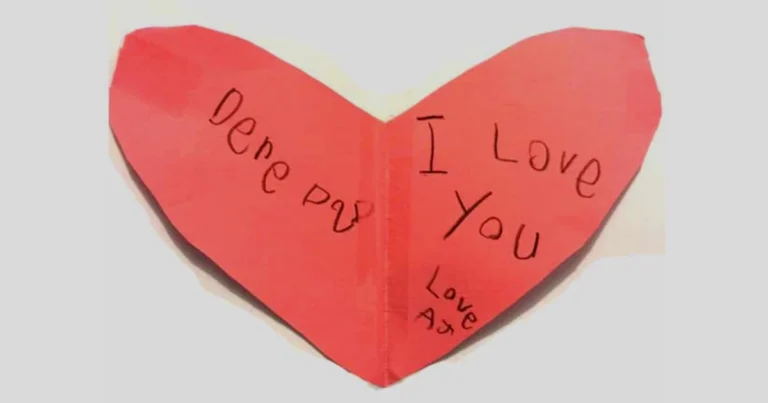 Dere Dad
I Love
You
Love
AJ